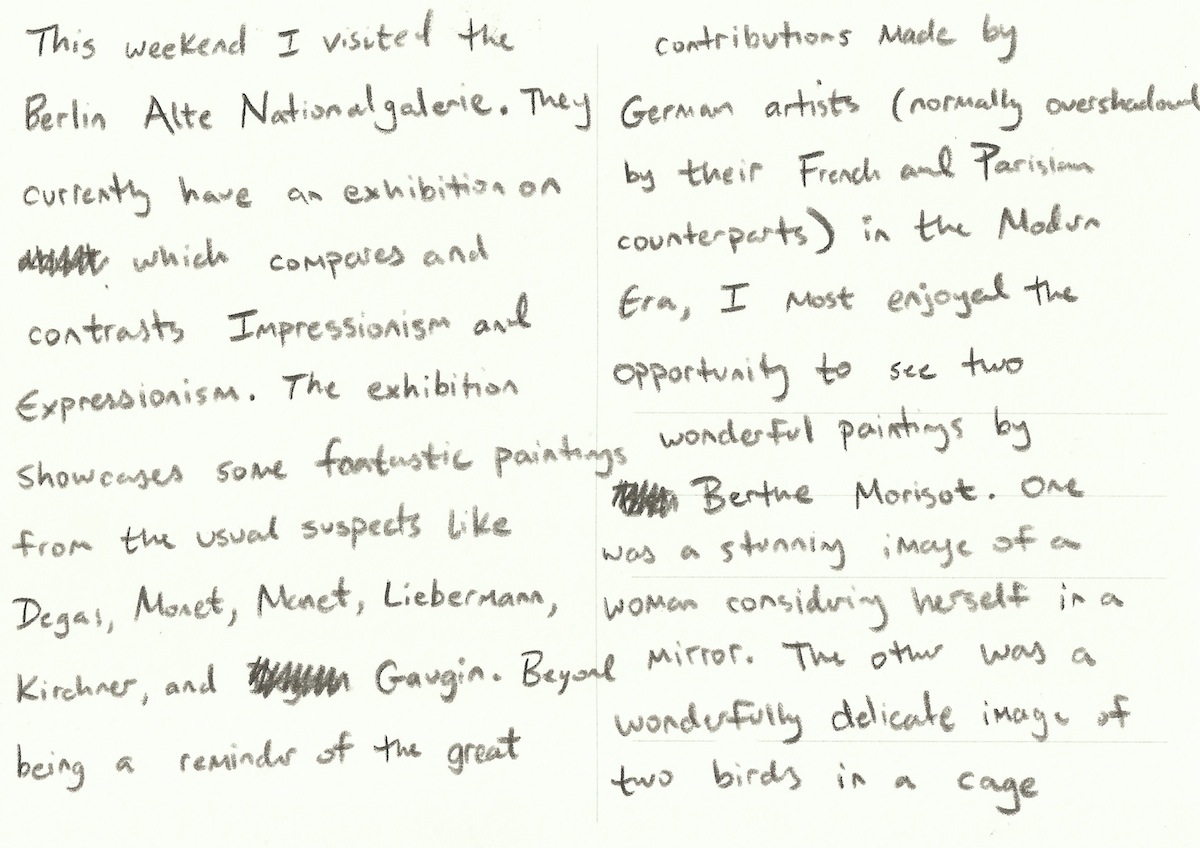 This weekend I visited the
Berlin Alte Nationalgalerie. They
currently have an exhibition on
which compares and
contrasts Impressionism and
Expressionism. The exhibition
showcases some fantastic paintings
from the usual suspects like
Degas, Monet, Manet, Liebermann,
Kirchner, and Gaugin. Beyond
being a reminder of the great
contributions made by
German artists (normally overshadowed
by their French and Parisian
counterparts) in the Modern
Era, I most enjoyed the
opportunity to see two
wonderful paintings by
Berthe Morisot. One
was a stunning image of a
woman considering herself in a
mirror. The other was a
wonderfully delicate image of
two birds in a cage